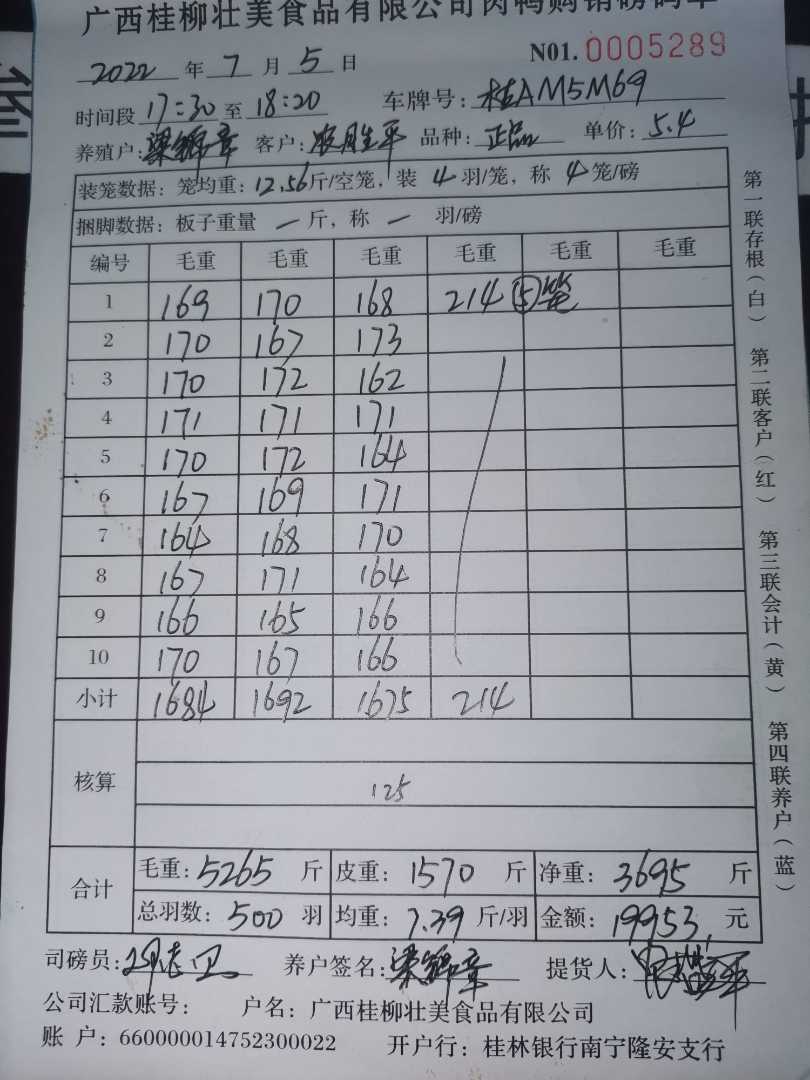 广西桂柳壮美食品有限公司肉鸭购销磅码单
2022 年 7 月 5 日 N01. 0005289
时间段 17:30 至 18:20 车牌号: 桂AM5M69
养殖户: 梁锦章 客户: 农胜平 品种: 正品 单价: 5.4
装笼数据: 笼均重: 12.56 斤/空笼, 装 4 羽/笼, 称 4 笼/磅
捆脚数据: 板子重量 一 斤, 称 一 羽/磅
编号 毛重 毛重 毛重 毛重 毛重 毛重
1 169 170 168 214 ⑤笼
2 170 167 173
3 170 172 162
4 171 171 171
5 170 172 164
6 167 169 171
7 164 168 170
8 167 171 164
9 166 165 166
10 170 167 166
小计 1684 1692 1675 214
核算 125
合计 毛重: 5265 斤 皮重: 1570 斤 净重: 3695 斤
总羽数: 500 羽 均重: 7.39 斤/羽 金额: 19953. 元
司磅员: 养户签名: 梁锦章 提货人:
公司汇款账号: 户名: 广西桂柳壮美食品有限公司
账 户: 660000014752300022 开户行: 桂林银行南宁隆安支行
第一联存根(白) 第二联客户(红) 第三联会计(黄) 第四联养户(蓝)